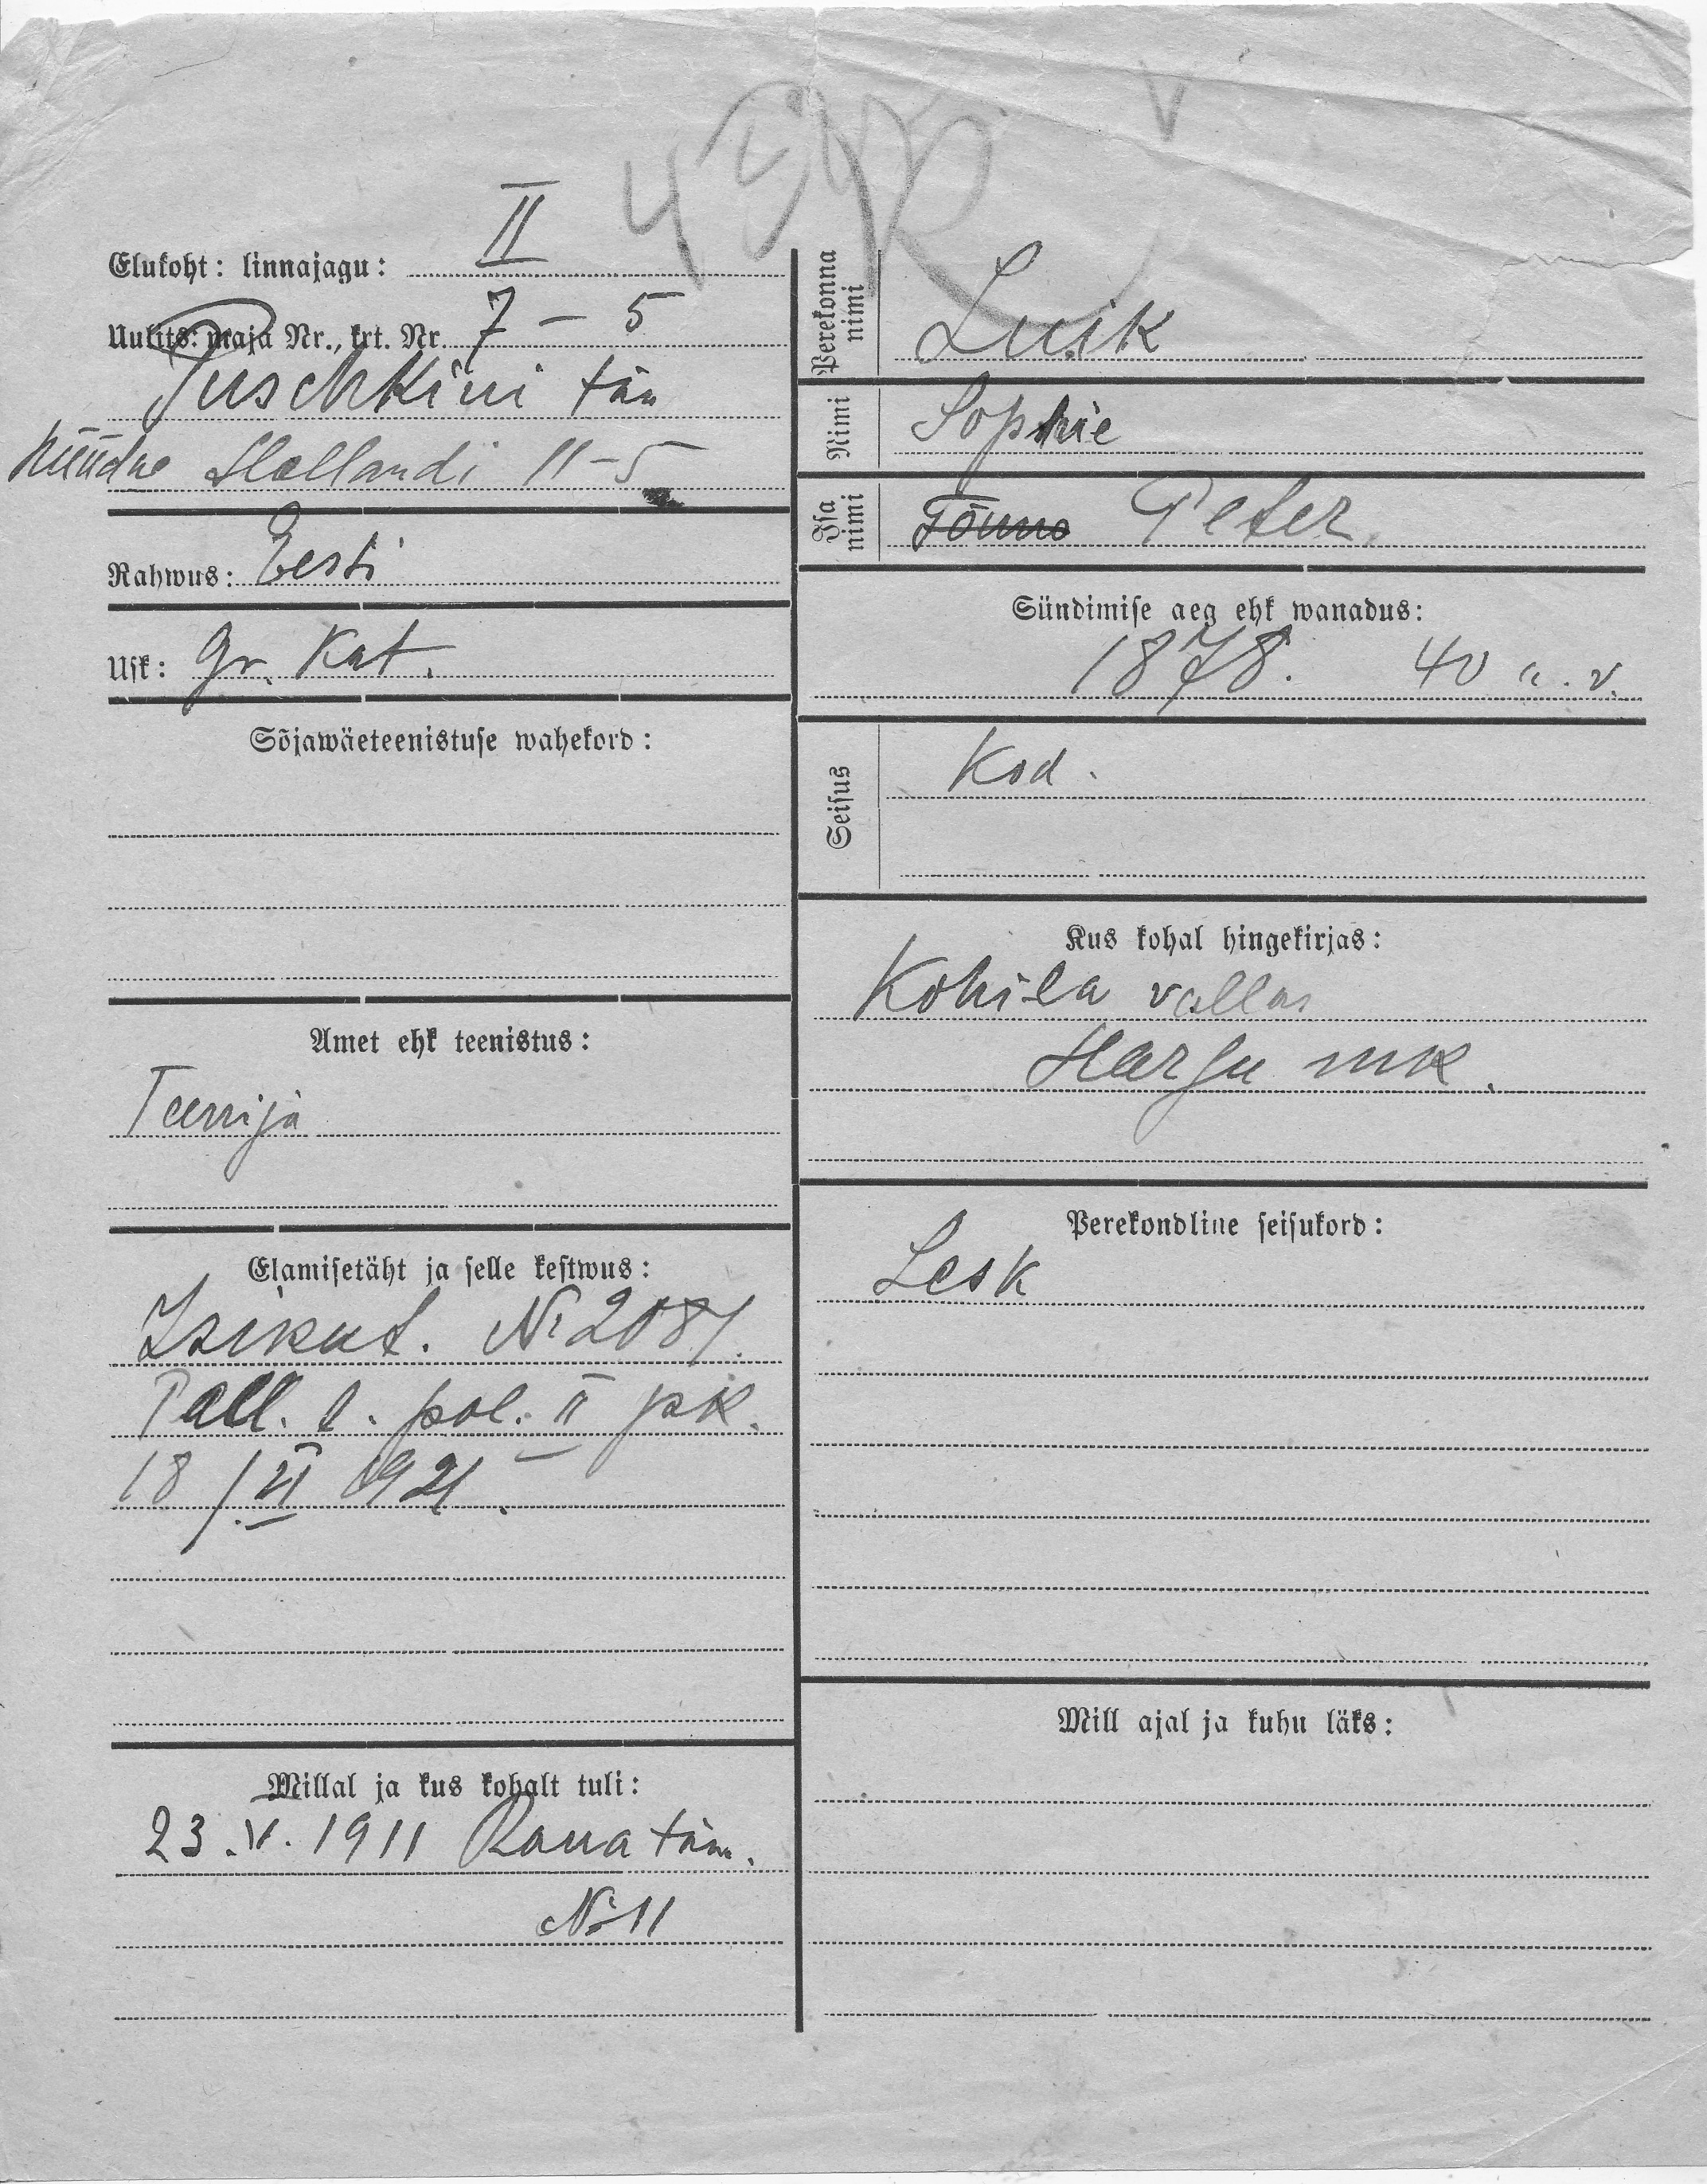 Elukoht: linnajagu: II
Uulits: maja Nr., krt. Nr. 7 – 5
Puschkini tän
Nüüdne Hollandi 11–5
Rahwus: Eesti
Usk: Gr. Kat.
Sõjawäeteenistuse wahekord:
Amet ehk teenistus:
Teenija
Elamisetäht ja selle kestwus:
Isikut. Nr 2081.
Tall. l. pol. II jsk.
18/VI 1921.
Millal ja kus kohalt tuli:
23.V.1911 Raua tän.
Nr 11
Perekonna nimi
Luik
Nimi
Sophie
Isa nimi
Tõnno Peter.
Sündimise aeg ehk wanadus:
1878. 40 a. v.
Seisus
Kod.
Kus kohal hingekirjas:
Kohila vallas
Harju mk.
Perekondline seisukord:
Lesk
Mill ajal ja kuhu läks: